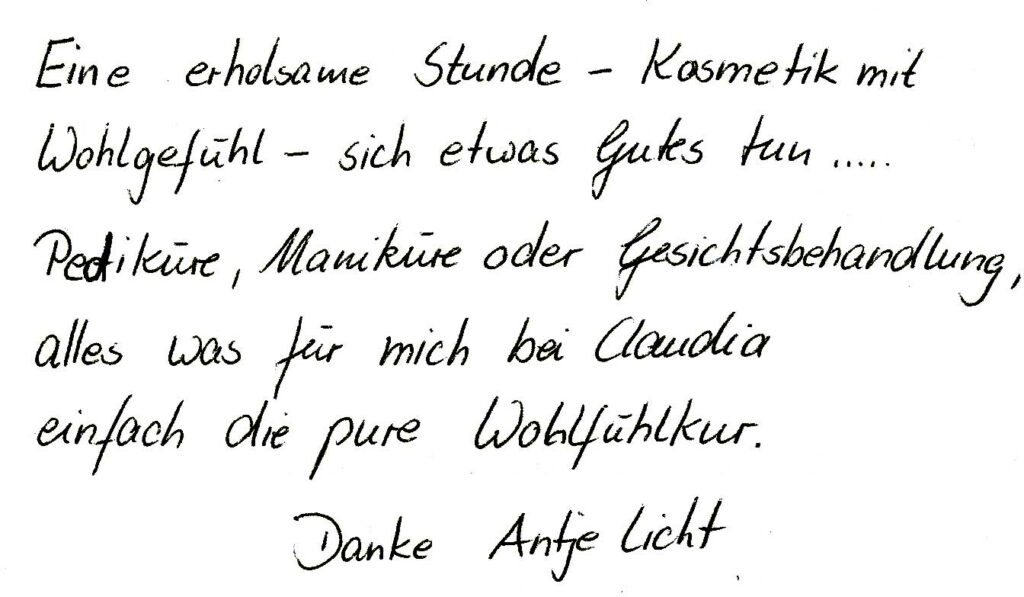 Eine erholsame Stunde – Kosmetik mit
Wohlgefühl – sich etwas Gutes tun .....
Pediküre, Maniküre oder Gesichtsbehandlung,
alles was für mich bei Claudia
einfach die pure Wohlfühlkur.
Danke Antje Licht